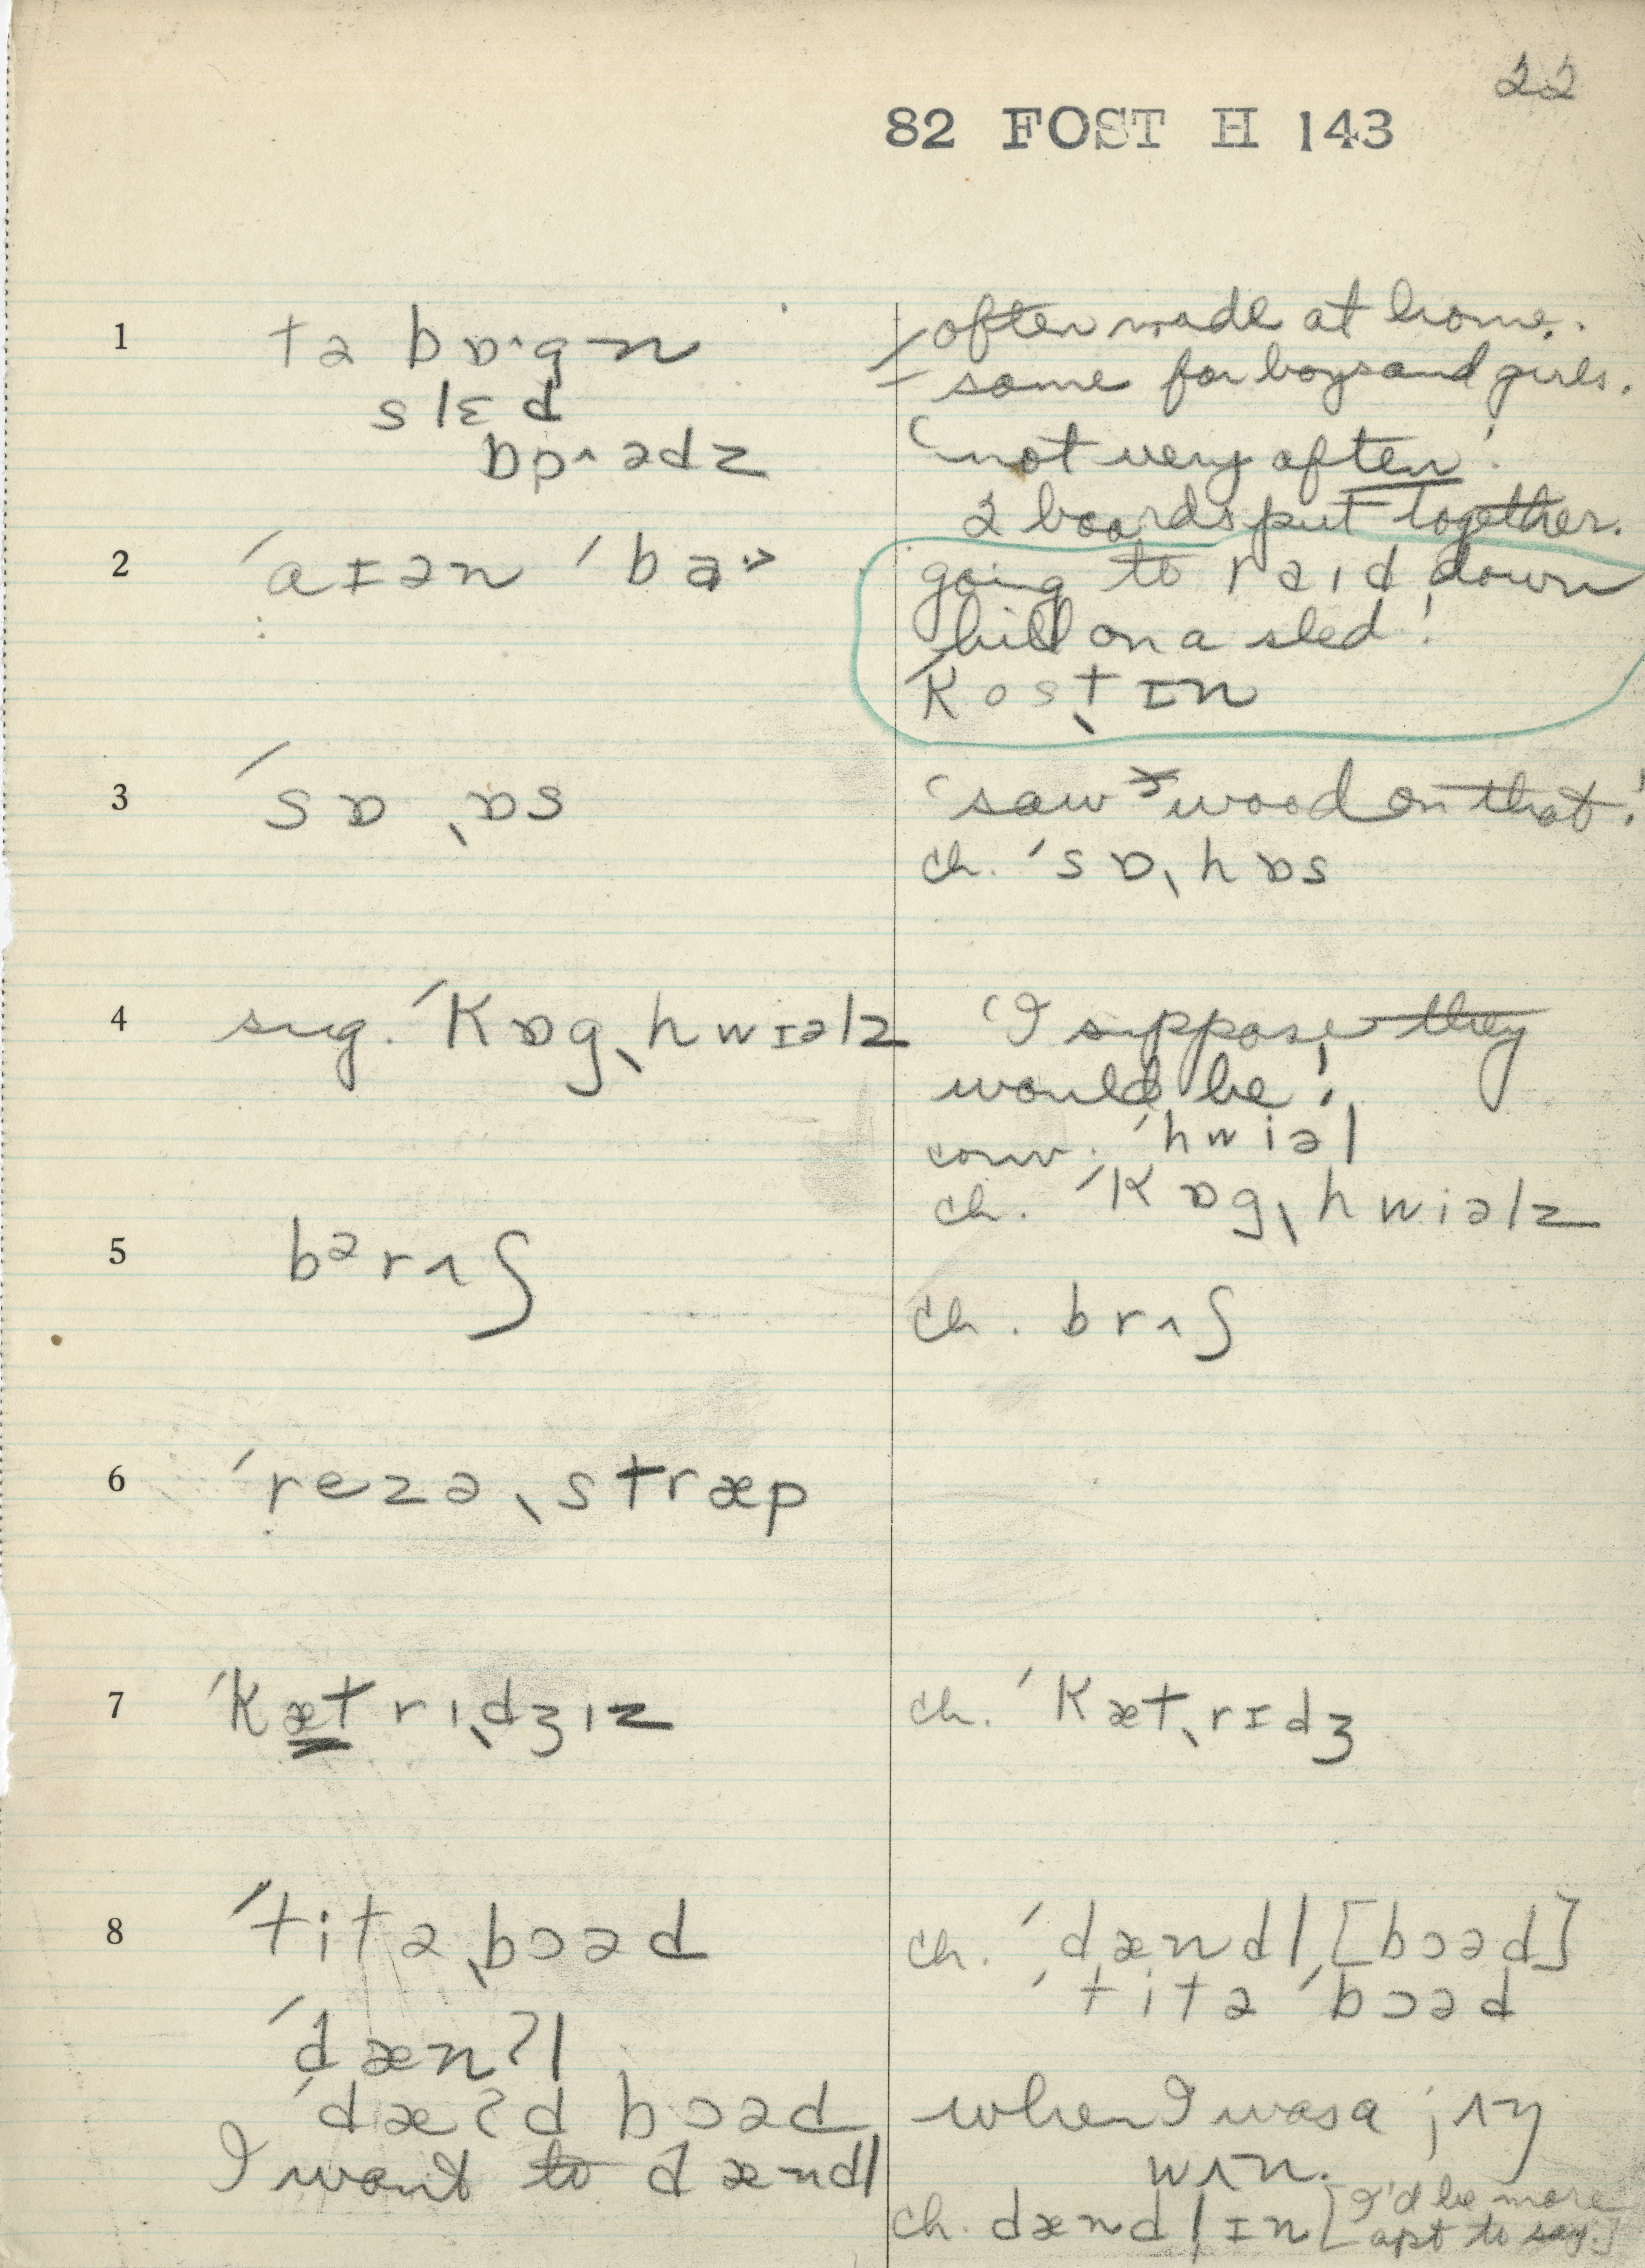 22
82 FOST H 143
1 tə bɒ·gn often made at home.
slɛd same for boys and girls.
'not very often'.
2 boards put together.
2 ˈaɪən ˈba going to raɪd down
hill on a sled!
ˈkosˌtɪn
3 ˈsɒˌɒs 'saw wood on that'!
ch. ˈsɒˌhɒs
4 sug. ˈkɒgˌhwɪəlz 'I suppose they
would be'.
conv. ˈhwiəl
ch. ˈkɒgˌhwiəlz
5 bᵊrʌʃ
ch. brʌʃ
6 ˈrezəˌstræp
7 ˈkætrɪˌdʒɪz ch. ˈkætˌrɪdʒ
8 ˈtitəˌbɔəd ch. ˈdændl [bɔəd]
ˈtitə ˈbɔəd
ˈdænʔl
ˈdæʔd bɔəd when I was a jʌŋ
I want to dændl wʌn.
ch. dændlɪn [I'd be more
apt to say.]